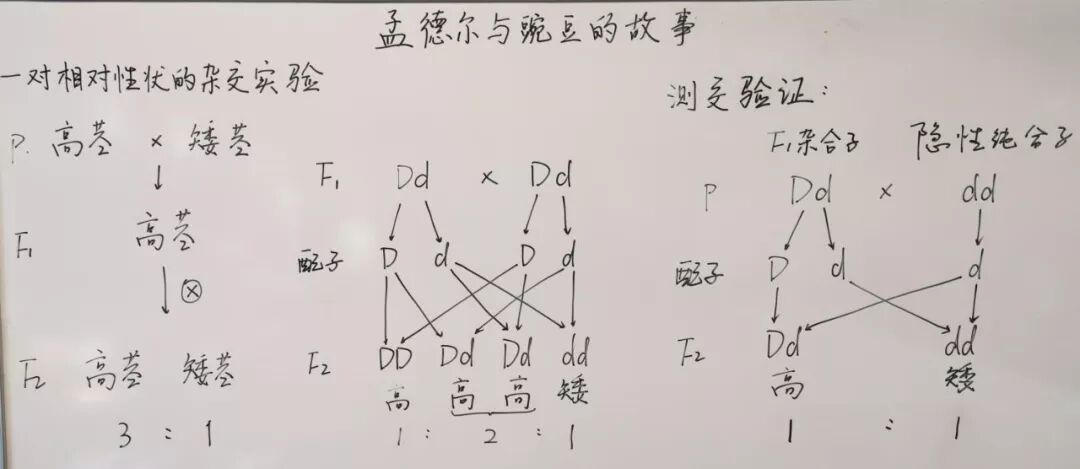 孟德尔与豌豆的故事
一对相对性状的杂交实验
P. 高茎 × 矮茎
F₁ 高茎
⊗
F₂ 高茎 矮茎
3 : 1
F₁ Dd × Dd
配子 D d D d
F₂ DD Dd Dd dd
高 高 高 矮
1 : 2 : 1
测交验证:
F₁杂合子 隐性纯合子
P Dd × dd
配子 D d d
F₂ Dd dd
高 矮
1 : 1